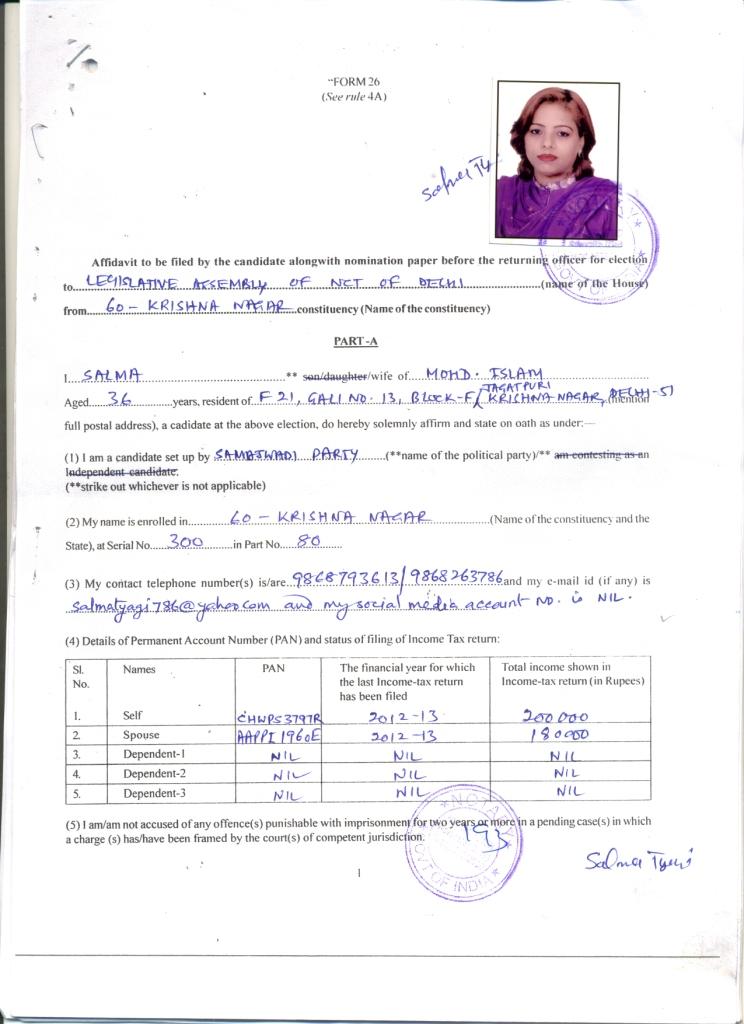 "FORM 26
(See rule 4A)
Salma Ty
Affidavit to be filed by the candidate alongwith nomination paper before the returning officer for election
to....LEGISLATIVE ASSEMBLY OF NCT OF DELHI....(name of the House)
from....60 - KRISHNA NAGAR....constituency (Name of the constituency)
PART-A
I....SALMA....** son/daughter/wife of....MOHD. ISLAM
JAGATPURI
Aged....36....years, resident of F 21, GALI NO. 13, BLOCK-F, KRISHNA NAGAR, DELHI-51 (mention
full postal address), a cadidate at the above election, do hereby solemnly affirm and state on oath as under:—
(1) I am a candidate set up by SAMAJWADI PARTY....(**name of the political party)/** am contesting as an
Independent candidate.
(**strike out whichever is not applicable)
(2) My name is enrolled in....60 - KRISHNA NAGAR....(Name of the constituency and the
State), at Serial No....300....in Part No....80....
(3) My contact telephone number(s) is/are..9868793613/9868263786 and my e-mail id (if any) is
salmatyagi786@yahoo.com and my social media account NO. is NIL.
(4) Details of Permanent Account Number (PAN) and status of filing of Income Tax return:
Sl. No. Names PAN The financial year for which the last Income-tax return has been filed Total income shown in Income-tax return (in Rupees)
1. Self CHWPS3797R 2012-13 200000
2. Spouse AAPPI1960E 2012-13 180000
3. Dependent-1 NIL NIL NIL
4. Dependent-2 NIL NIL NIL
5. Dependent-3 NIL NIL NIL
(5) I am/am not accused of any offence(s) punishable with imprisonment for two years or more in a pending case(s) in which
a charge (s) has/have been framed by the court(s) of competent jurisdiction.
193
NOTARY
GOVT OF INDIA
Salma Tyagi
1